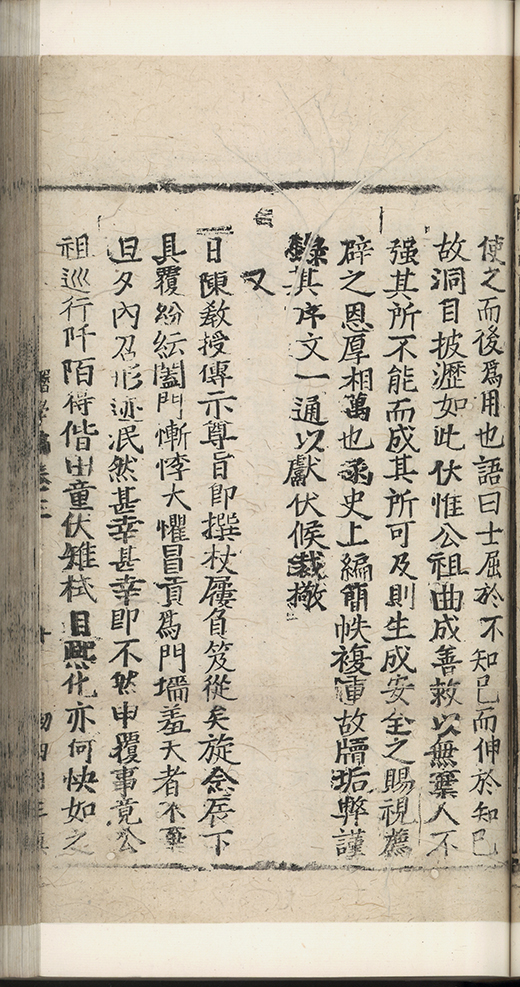 使之而後爲用也語曰士屈於不知已而伸於知已
故洞目披瀝如此伏惟公祖曲成善救以無棄人不
强其所不能而成其所可及則生成安全之賜視薦
辟之恩厚相萬也函史上編簡帙複重故牘垢弊謹
錄其序文一通以獻伏候裁擲
又
日陳敎授傳示尊旨即撰杖屨負笈從矣旋念辰下
具覆紛紜闔門慚悸大懼冒貢爲門墻羞大者不
旦夕內召形迹泯然甚幸甚幸即不然申覆事竟公
祖巡行阡陌得偕山童伏雉栻目熈化亦何快如之